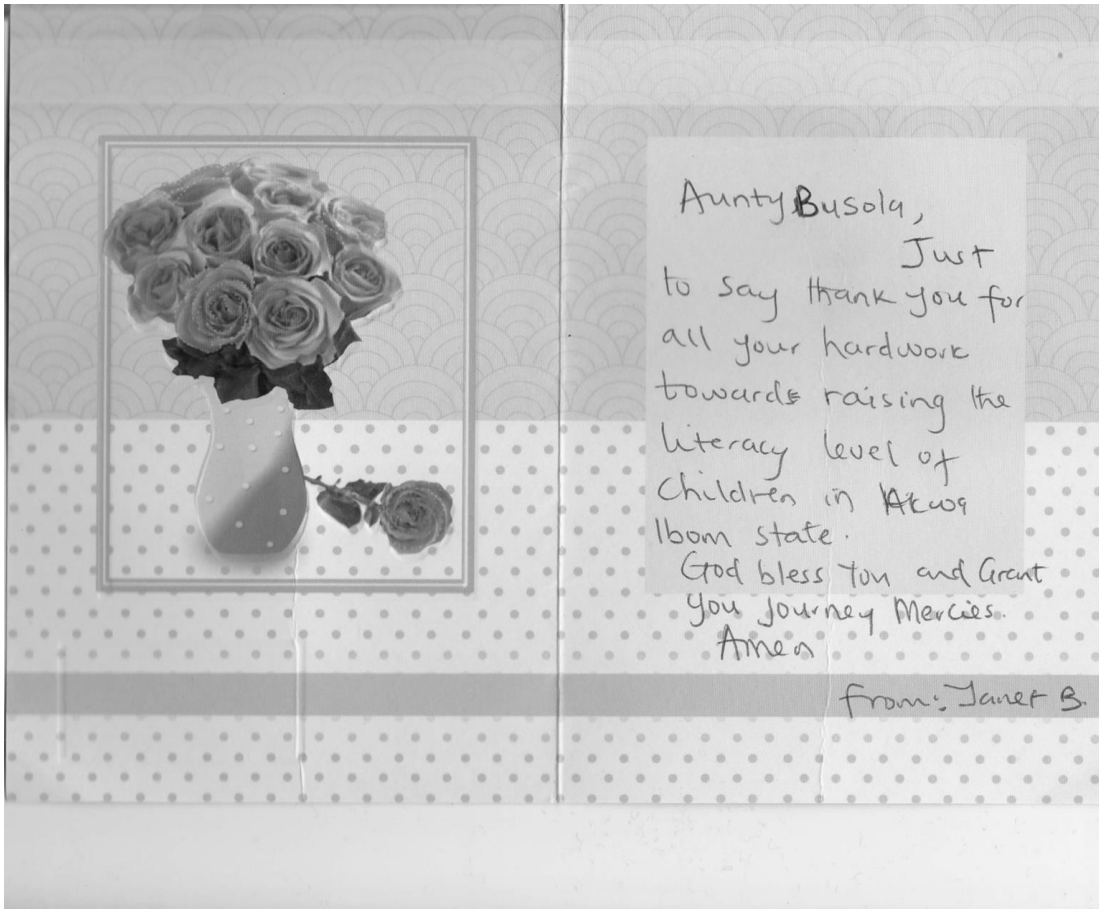 Aunty Busola,
Just
to say thank you for
all your hardwork
towards raising the
literacy level of
children in Akwa
Ibom state.
God bless You and Grant
you Journey Mercies.
Amen
from: Janet B.